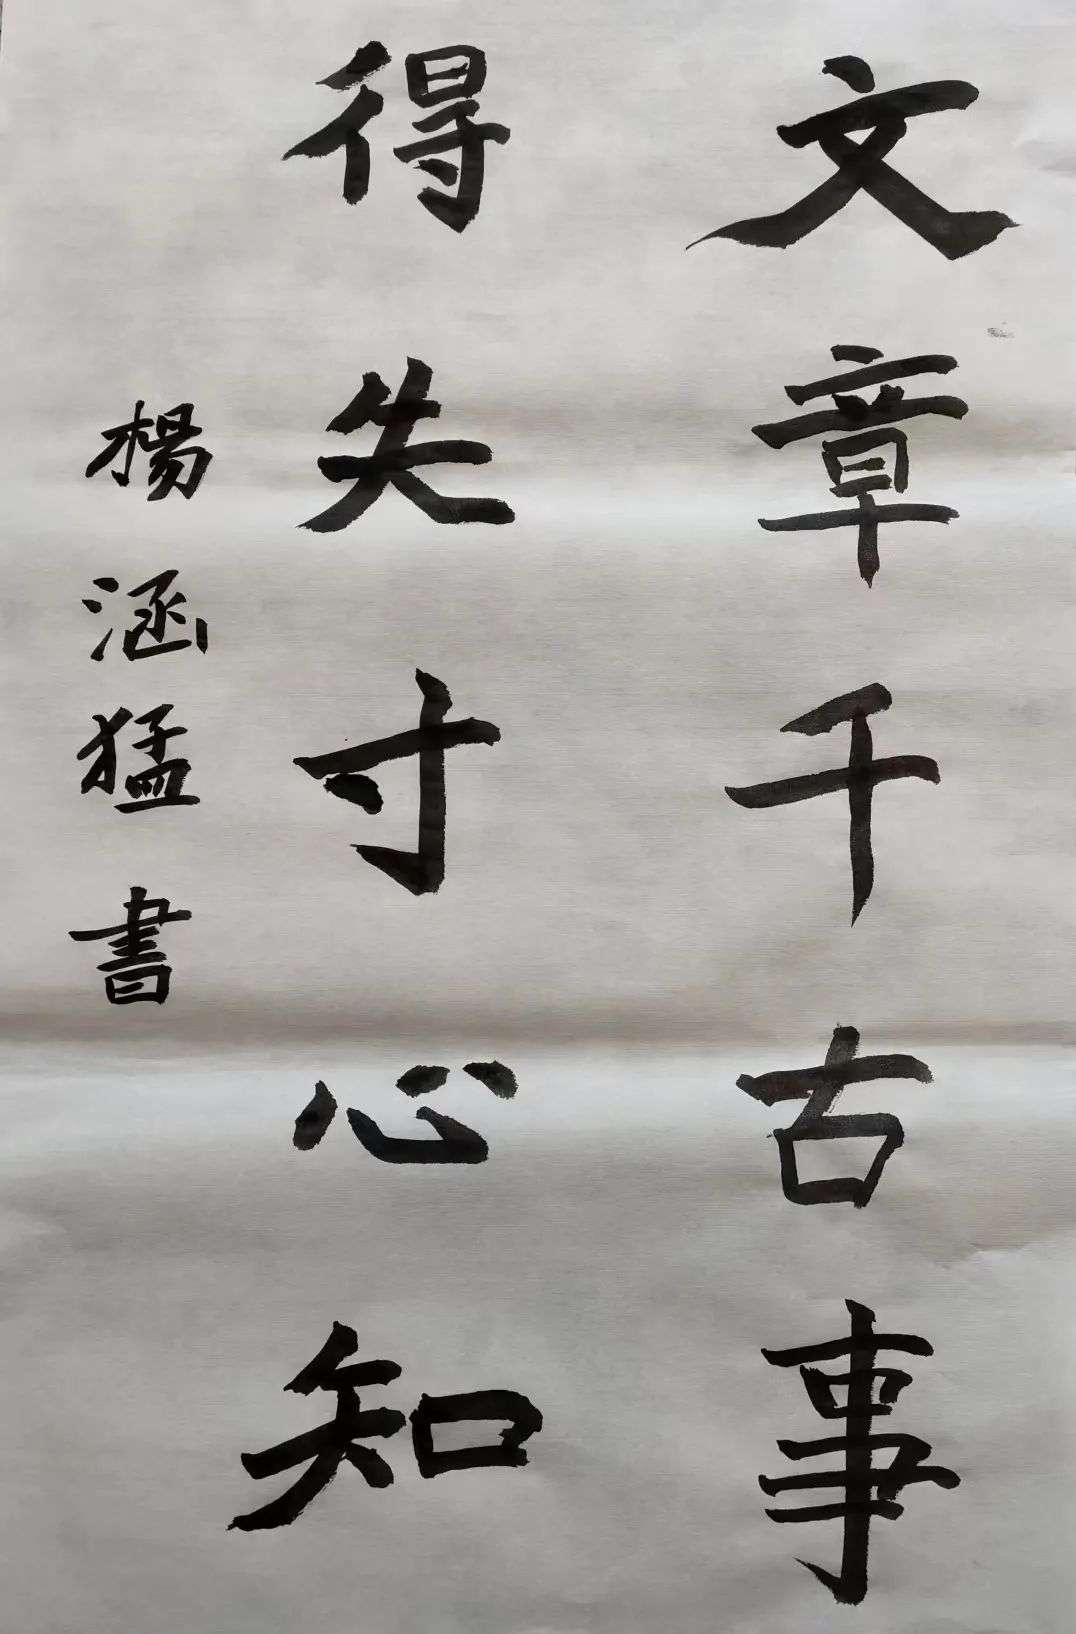 文章千古事
得失寸心知
楊涵猛書